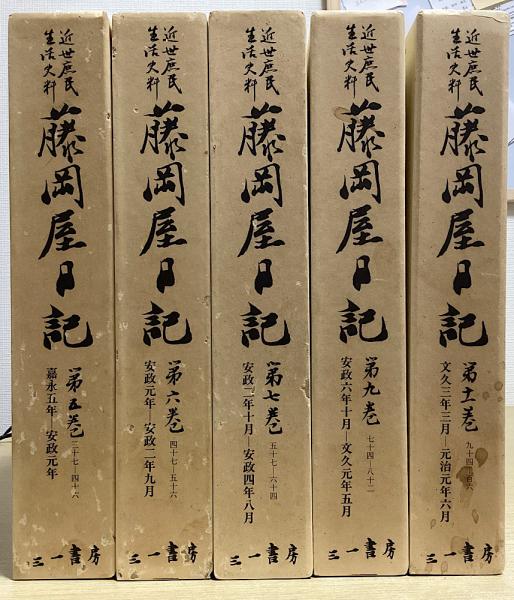 近世庶民
生活史料
藤岡屋日記
第五巻
三十七—四十六
嘉永五年—安政元年
三一書房
近世庶民
生活史料
藤岡屋日記
第六巻
四十七—五十六
安政元年—安政二年九月
三一書房
近世庶民
生活史料
藤岡屋日記
第七巻
五十七—六十四
安政二年十月—安政四年八月
三一書房
近世庶民
生活史料
藤岡屋日記
第九巻
七十四—八十二
安政六年十月—文久元年五月
三一書房
近世庶民
生活史料
藤岡屋日記
第十一巻
九十四—百六
文久三年三月—元治元年六月
三一書房